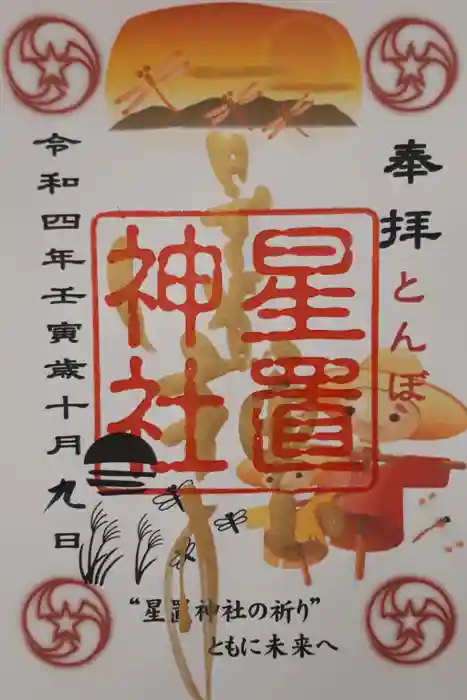 奉拝
とんぼ
星置
神社
令和四年壬寅歳十月九日
“星置神社の祈り”
ともに未来へ